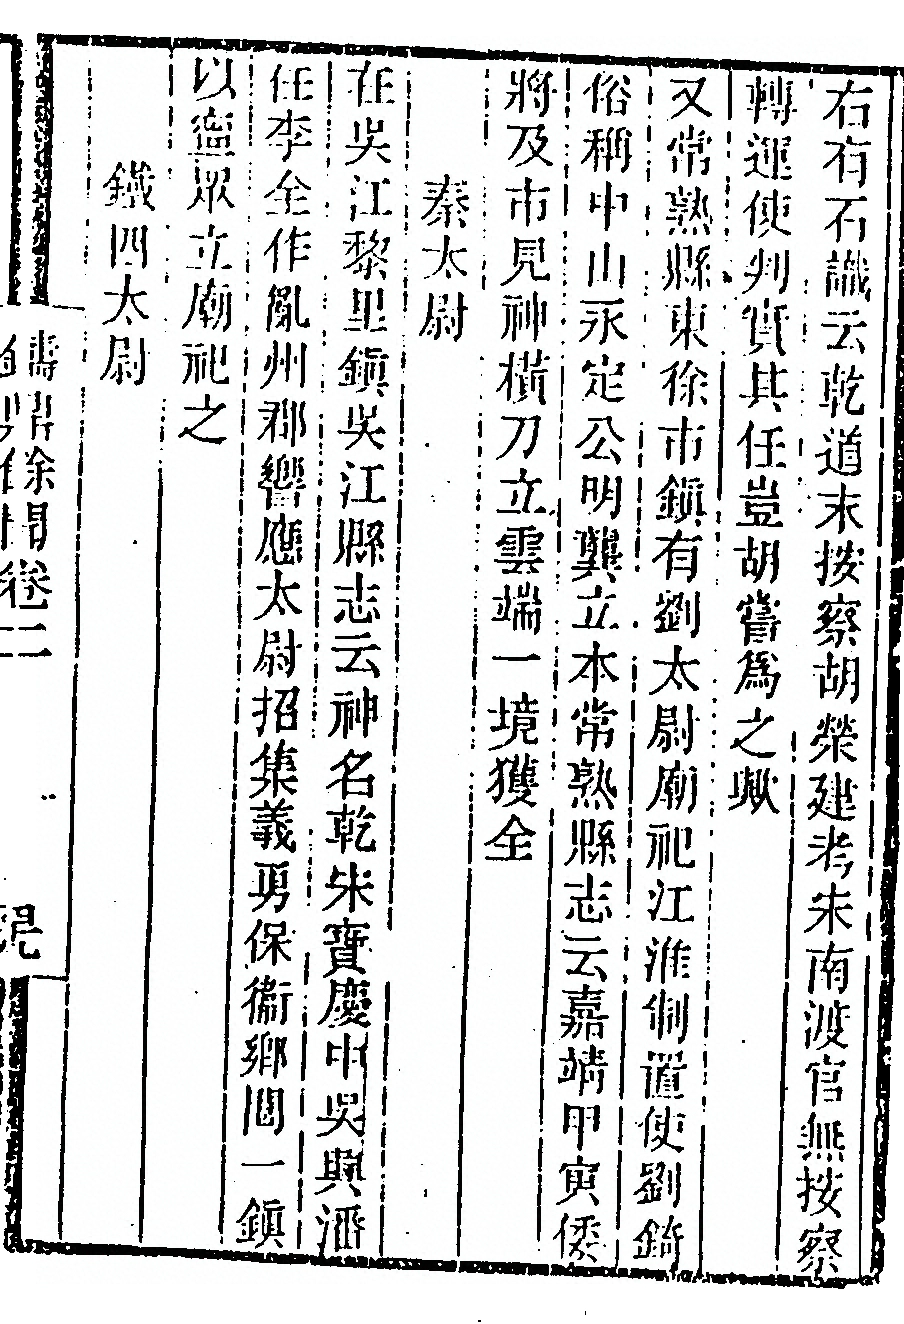 右有石識云乾道末按察胡榮建考宋南渡官無按察
轉運使判實其任豈胡嘗爲之歟
又常熟縣東徐市鎭有劉太尉廟祀江淮制置使劉錡
俗稱中山永定公明龔立本常熟縣志云嘉靖甲寅倭
將及市見神橫刀立雲端一境獲全
秦太尉
在吳江黎里鎭吳江縣志云神名乾宋寶慶中吳興潘
任李全作亂州郡響應太尉招集義勇保衞鄉閭一鎭
以寧眾立廟祀之
鐵四太尉
鑄鼎餘聞卷二